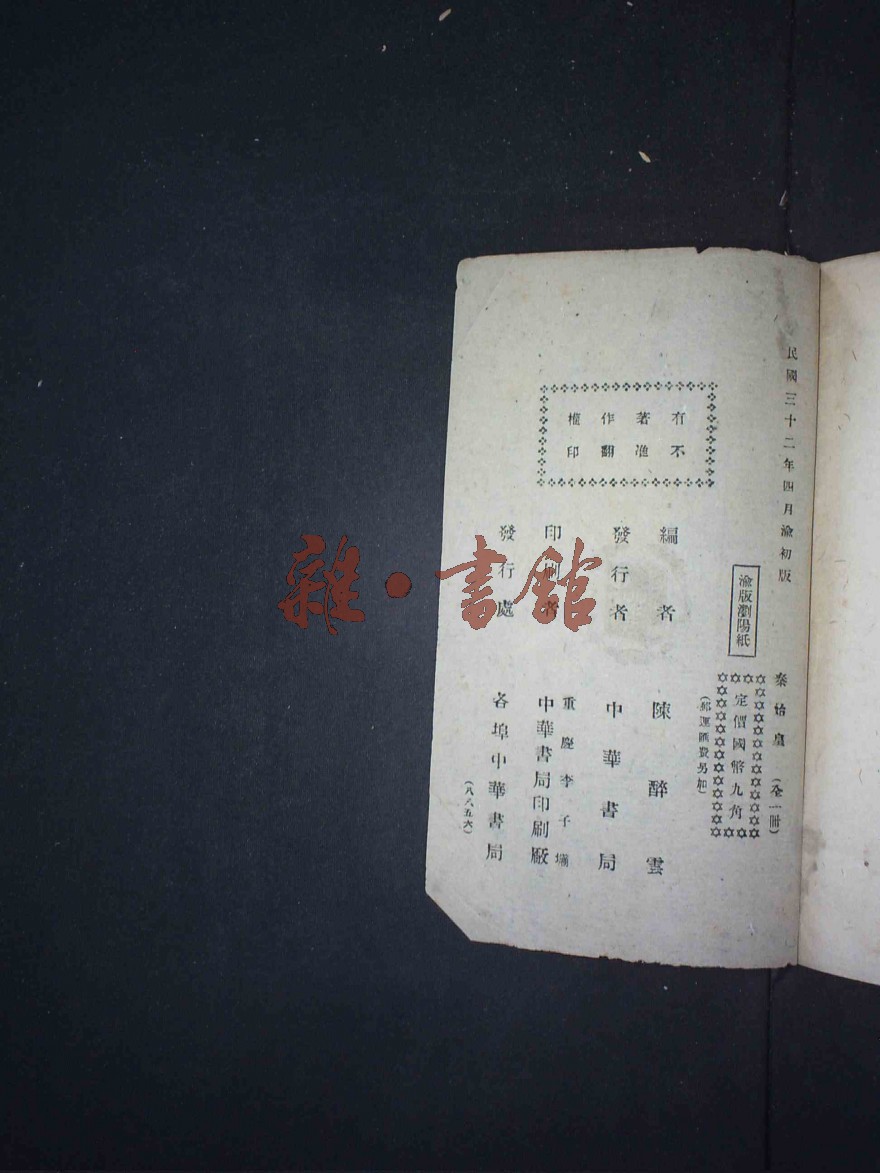 民國三十二年四月渝初版
渝版瀏陽紙
秦始皇（全一冊）
定價國幣九角
（郵運匯費另加）
有著作權
不准翻印
編者 陳醉雲
發行者 中華書局
印刷者 重慶李子壩
中華書局印刷廠
發行處 各埠中華書局
（八八五六）
雜·書館